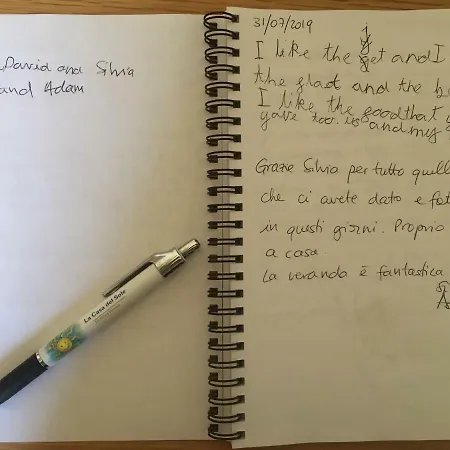 David and Silvia
and Adam
31/07/2019
I like the and I
the glad and the
I like the foodthat
gave too us and my
Grazie Silvia per tutto quell
che ci avete dato e fat
in questi giorni. Proprio
a casa.
La veranda è fantastica
La Casa del Sole